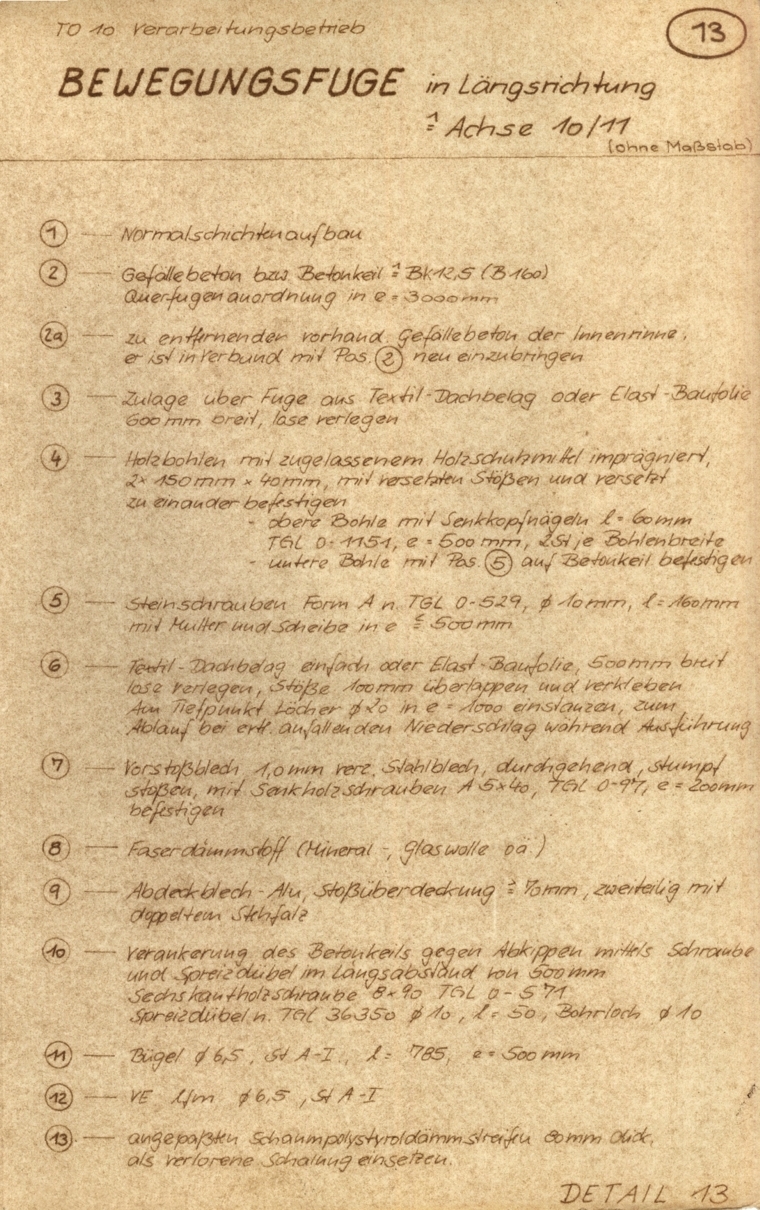 TO 10 Verarbeitungsbetrieb
13
BEWEGUNGSFUGE in Längsrichtung
≙ Achse 10/11
(ohne Maßstab)
1 — Normalschichtenaufbau
2 — Gefällebeton bzw. Betonkeil ≙ BK 12,5 (B 160)
Querfugenanordnung in e = 3000 mm
2a — zu entfernender vorhand. Gefällebeton der Innenrinne,
er ist in Verbund mit Pos. 2 neu einzubringen
3 — Zulage über Fuge aus Textil-Dachbelag oder Elast-Baufolie
600 mm breit, lose verlegen
4 — Holzbohlen mit zugelassenem Holzschutzmittel imprägniert,
2× 150 mm × 40 mm, mit versetzten Stößen und versetzt
zu einander befestigen
- obere Bohle mit Senkkopfnägeln l = 60 mm
TGL 0-1151, e = 500 mm, 2 St je Bohlenbreite
- untere Bohle mit Pos. 5 auf Betonkeil befestigen
5 — Steinschrauben Form A n. TGL 0-529, ϕ 10 mm, l = 160 mm
mit Mutter und Scheibe in e ≦ 500 mm
6 — Textil-Dachbelag einfach oder Elast-Baufolie, 500 mm breit
lose verlegen, Stöße 100 mm überlappen und verkleben
Am Tiefpunkt Löcher ϕ 20 in e = 1000 einstanzen, zum
Ablauf bei evtl. anfallenden Niederschlag während Ausführung
7 — Vorstoßblech 1,0 mm verz. Stahlblech, durchgehend, stumpf
stoßen, mit Senkholzschrauben A 5×40, TGL 0-97, e = 200 mm
befestigen
8 — Faserdämmstoff (Mineral-, Glaswolle oä.)
9 — Abdeckblech-Alu, Stoßüberdeckung ≙ 70 mm, zweiteilig mit
doppeltem Stehfalz
10 — Verankerung des Betonkeils gegen Abkippen mittels Schraube
und Spreizdübel im Längsabstand von 500 mm
Sechskantholzschraube 8×90 TGL 0-571
Spreizdübel n. TGL 36350 ϕ 10, l = 50, Bohrloch ϕ 10
11 — Bügel ϕ 6,5, St A-I, l = 785, e = 500 mm
12 — VE lfm ϕ 6,5, St A-I
13 — angepaßten Schaumpolystyroldämmstreifen 80 mm dick,
als verlorene Schalung einsetzen.
DETAIL 13